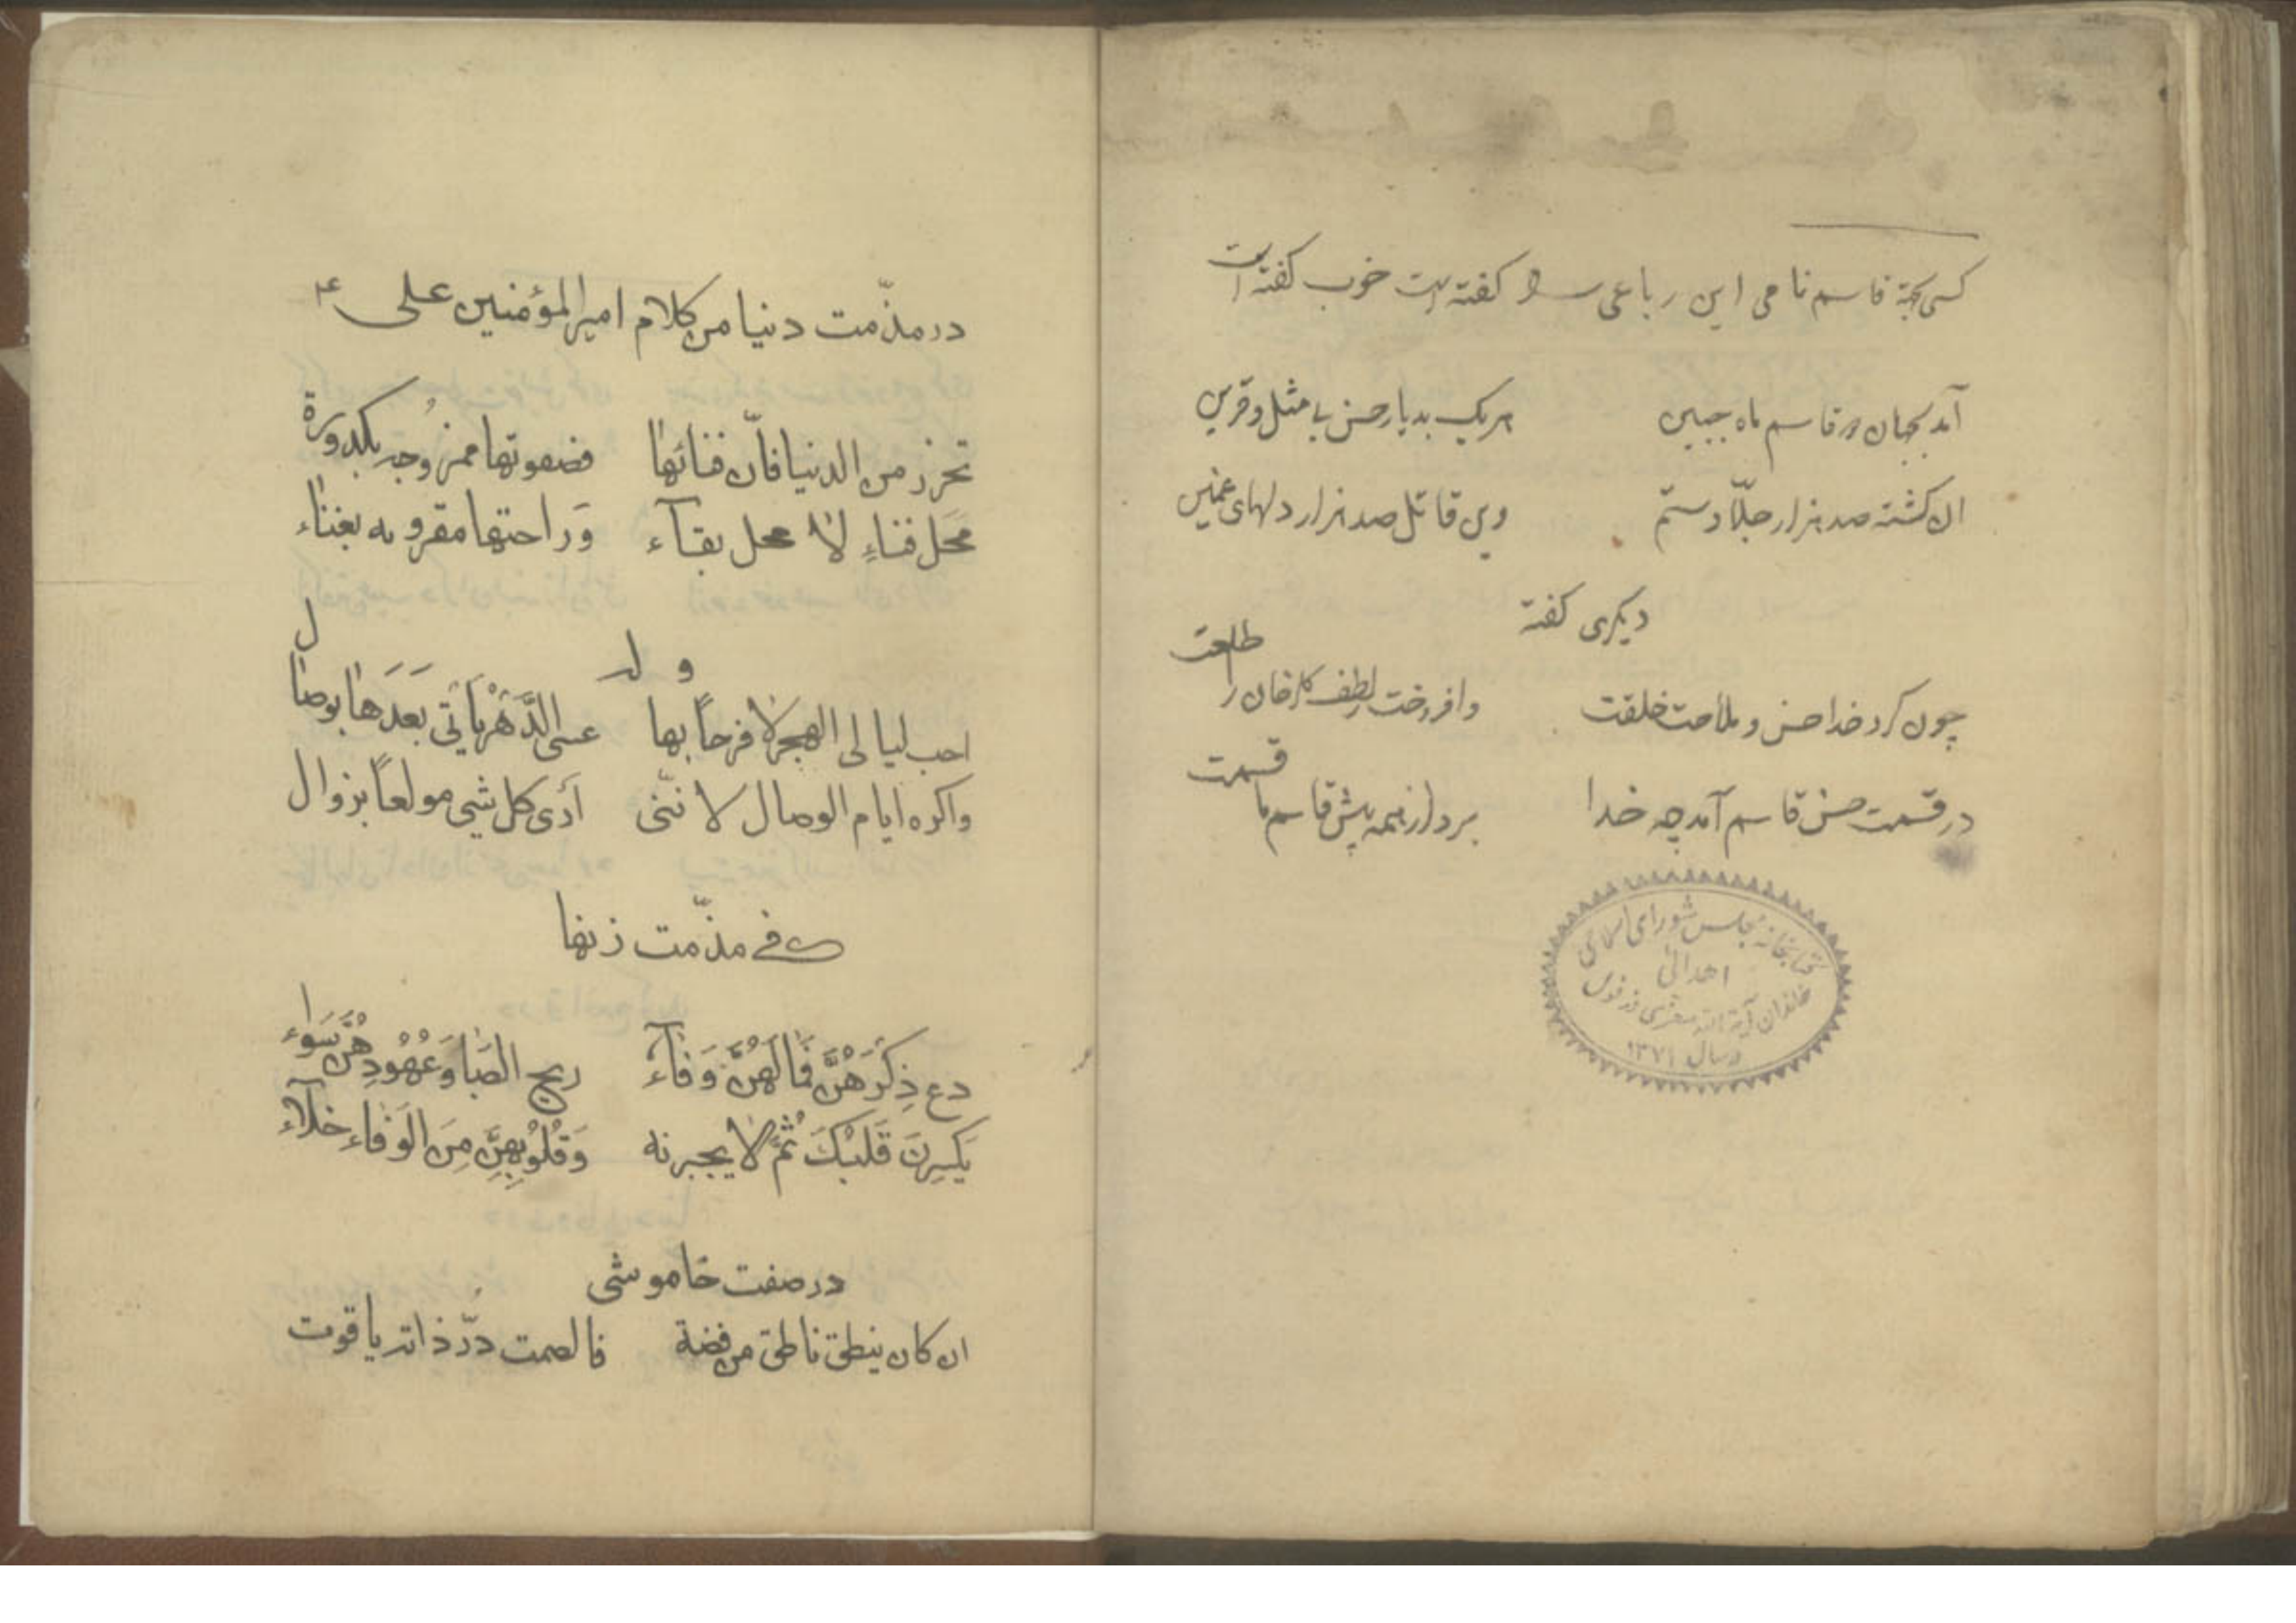 کسی بجهة قاسم نامی این رباعی را گفته است خوب گفته است
آمد بجهان دو قاسم ماه جبین هریک بدیار حسن بی مثل و قرین
ان کشته صد هزار جلّاد ستم وین قاتل صد هزار دلهای غمین
دیکری کفته
چون کرد خدا حسن و ملاحت خلقت وافروخت لطف کلرخان را طلعت
در قسمت حسن قاسم آمد چه خدا برد از همه پیش قاسم ما قسمت
کتابخانه مجلس شورای اسلامی
اهدائی
خاندان آیة الله معزی دزفولی
در سال ۱۳۷۱
در مذّمت دنیا من کلام امیر المؤمنین علی ع
تحرز من الدنیا فاّن فنائها فصفوتها ممزوجه بکدورة
محل فناءٍ لا محل بقآء وَراحتها مقرونه بغناء
وله
احب لیالی الهجر لا فرحاً بها عسی الدَّهْر یاَتی بَعَدَها بوصال
واکره ایام الوصال لاننّی أدی کل شیی مولعاً بزوال
فی مذّمت زنها
دع ذِکْرَهُنَّ فَمالَهُنَّ وَفآء ریح الصَبا وَعُهُودِهُنَّ سَواء
یَکسِرنَ قَلبْکَ ثُمَّ لا یجبرنه وَقُلُوبُهِنَّ مِنَ الوَفاءِ خلآء
در صفت خاموشی
ان کان ینطق ناطق من فضة فالصمت درّ ذاته یاقوت